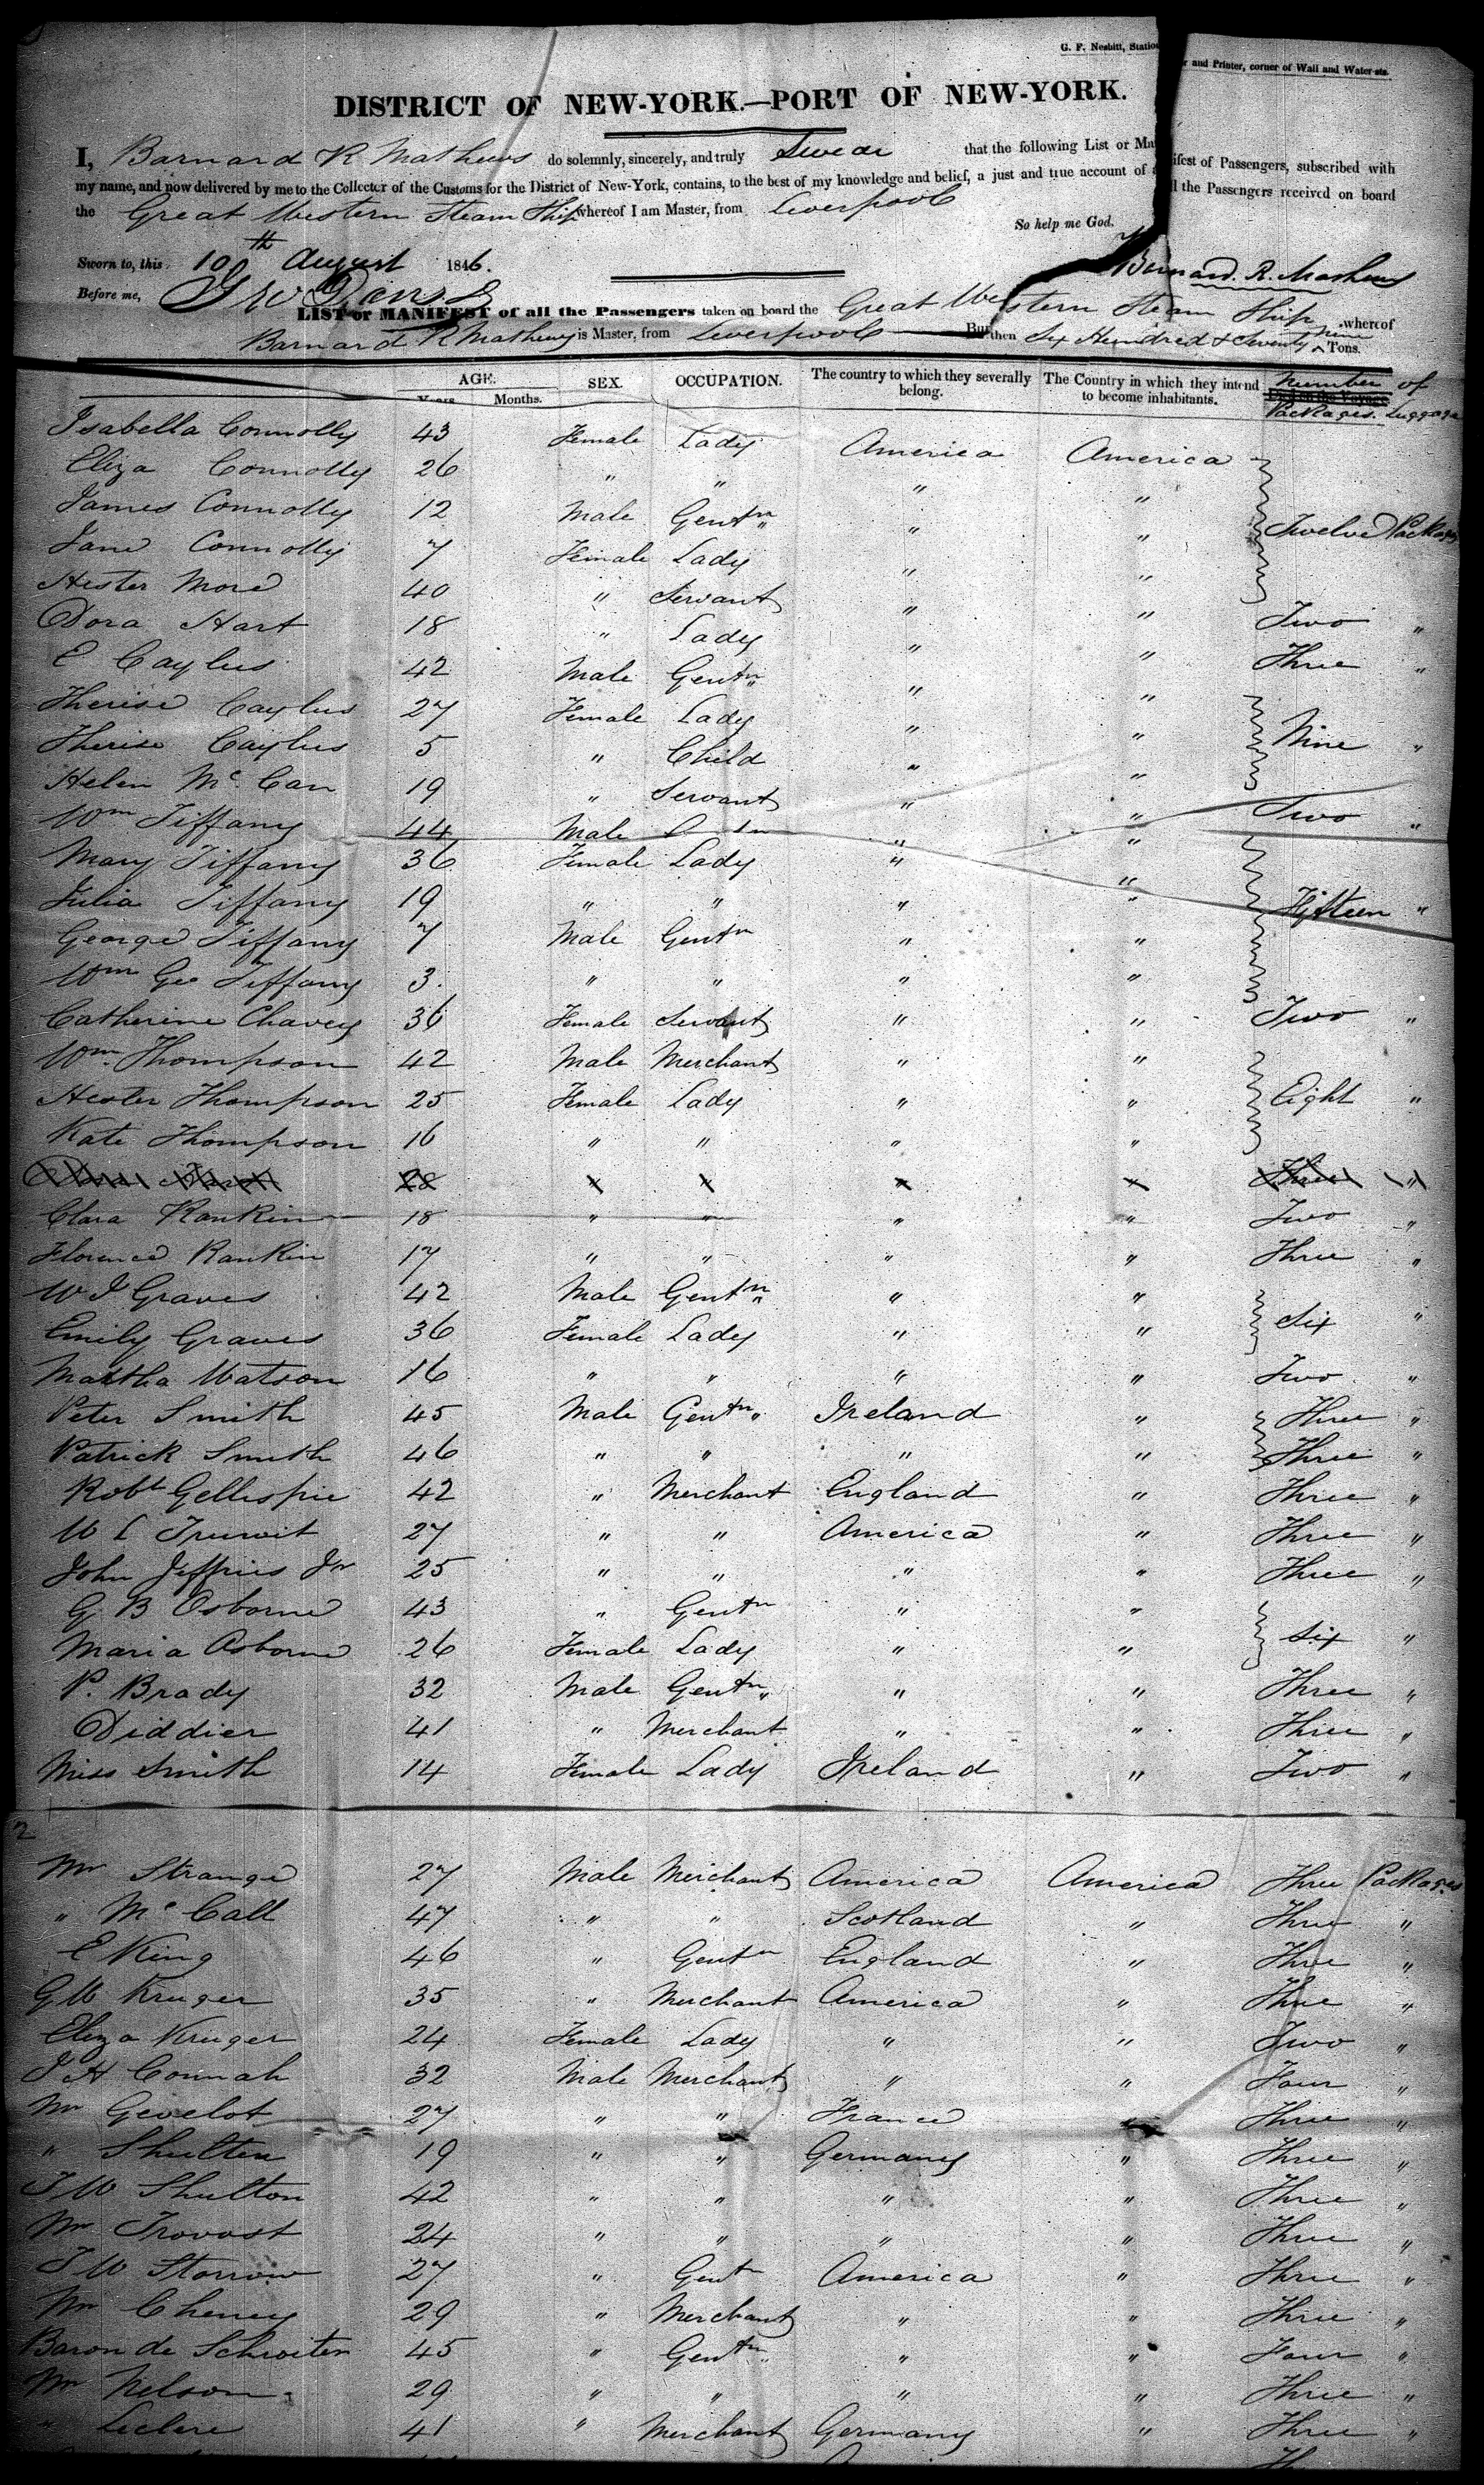 G. F. Nesbitt, Stationer and Printer, corner of Wall and Water-sts.
DISTRICT OF NEW-YORK.—PORT OF NEW-YORK.
I, Barnard R Mathews do solemnly, sincerely, and truly Swear that the following List or Manifest of Passengers, subscribed with
my name, and now delivered by me to the Collector of the Customs for the District of New-York, contains, to the best of my knowledge and belief, a just and true account of all the Passengers received on board
the Great Western Steam Ship whereof I am Master, from Liverpool
So help me God.
Sworn to, this 10th August 1846.
Barnard. R. Mathews
Before me,
LIST or MANIFEST of all the Passengers taken on board the Great Western Steam Ship whereof
Barnard R Mathews is Master, from Liverpool Burthen Six Hundred & Seventy Nine Tons.
AGE. SEX. OCCUPATION. The country to which they severally belong. The Country in which they intend to become inhabitants. Number of
Years Months. Died on the Voyage Packages Luggage
Isabella Connolly 43 Female Lady America America
Eliza Connolly 26 " " " "
James Connolly 12 Male Gentn " " Twelve Packages
Jane Connolly 7 Female Lady " "
Hester More 40 " Servant " "
Dora Hart 18 " Lady " " Two "
E Caylus 42 Male Gentn " " Three "
Therise Caylus 27 Female Lady " "
Therise Caylus 5 " Child " " Nine "
Helen Mc Can 19 " Servant " " Two "
Wm Tiffany 44 Male Gentn " "
Mary Tiffany 36 Female Lady " "
Julia Tiffany 19 " " " " Fifteen "
George Tiffany 7 Male Gentn " "
Wm Geo Tiffany 3 " " " "
Catherine Chavey 36 Female Servant " " Two "
Wm Thompson 42 Male Merchant " "
Hester Thompson 25 Female Lady " " Eight "
Kate Thompson 16 " " " "
28 Three "
Clara Rankin 18 " " " " Two "
Florence Rankin 17 " " " " Three "
W J Graves 42 Male Gentn " "
Emily Graves 36 Female Lady " " Six "
Martha Watson 16 " " " " Two "
Peter Smith 45 Male Gentn Ireland " Three "
Patrick Smith 46 " " " " Three "
Robt Gellespie 42 " Merchant England " Three "
W L Truwit 27 " " America " Three "
John Jeffries Jr 25 " " " " Three "
G B Osborne 43 " Gentn " "
Maria Osborne 26 Female Lady " " Six "
P. Brady 32 Male Gentn " " Three "
Diddier 41 " Merchant " " Three "
Miss Smith 14 Female Lady Ireland " Two "
2
Mr Strange 27 Male Merchant America America Three Packages
" Mc Call 47 " " Scotland " Three "
E King 46 " Gentn England " Three "
G W Kruger 35 " Merchant America " Three "
Eliza Kruger 24 Female Lady " " Two "
J H Connah 32 Male Merchant " " Four "
Mr Gevelot 27 " " France " Three "
" Shulten 19 " " Germany " Three "
T W Shulton 42 " " " " Three "
Mr Trovost 24 " " " " Three "
T W Storrow 27 " Gentn America " Three "
Mr Cheney 29 " Merchant " " Three "
Baron de Schwiter 45 " Gentn " " Four "
Mr Nelson 29 " " " " Three "
" Leclere 41 " Merchant Germany " Three "